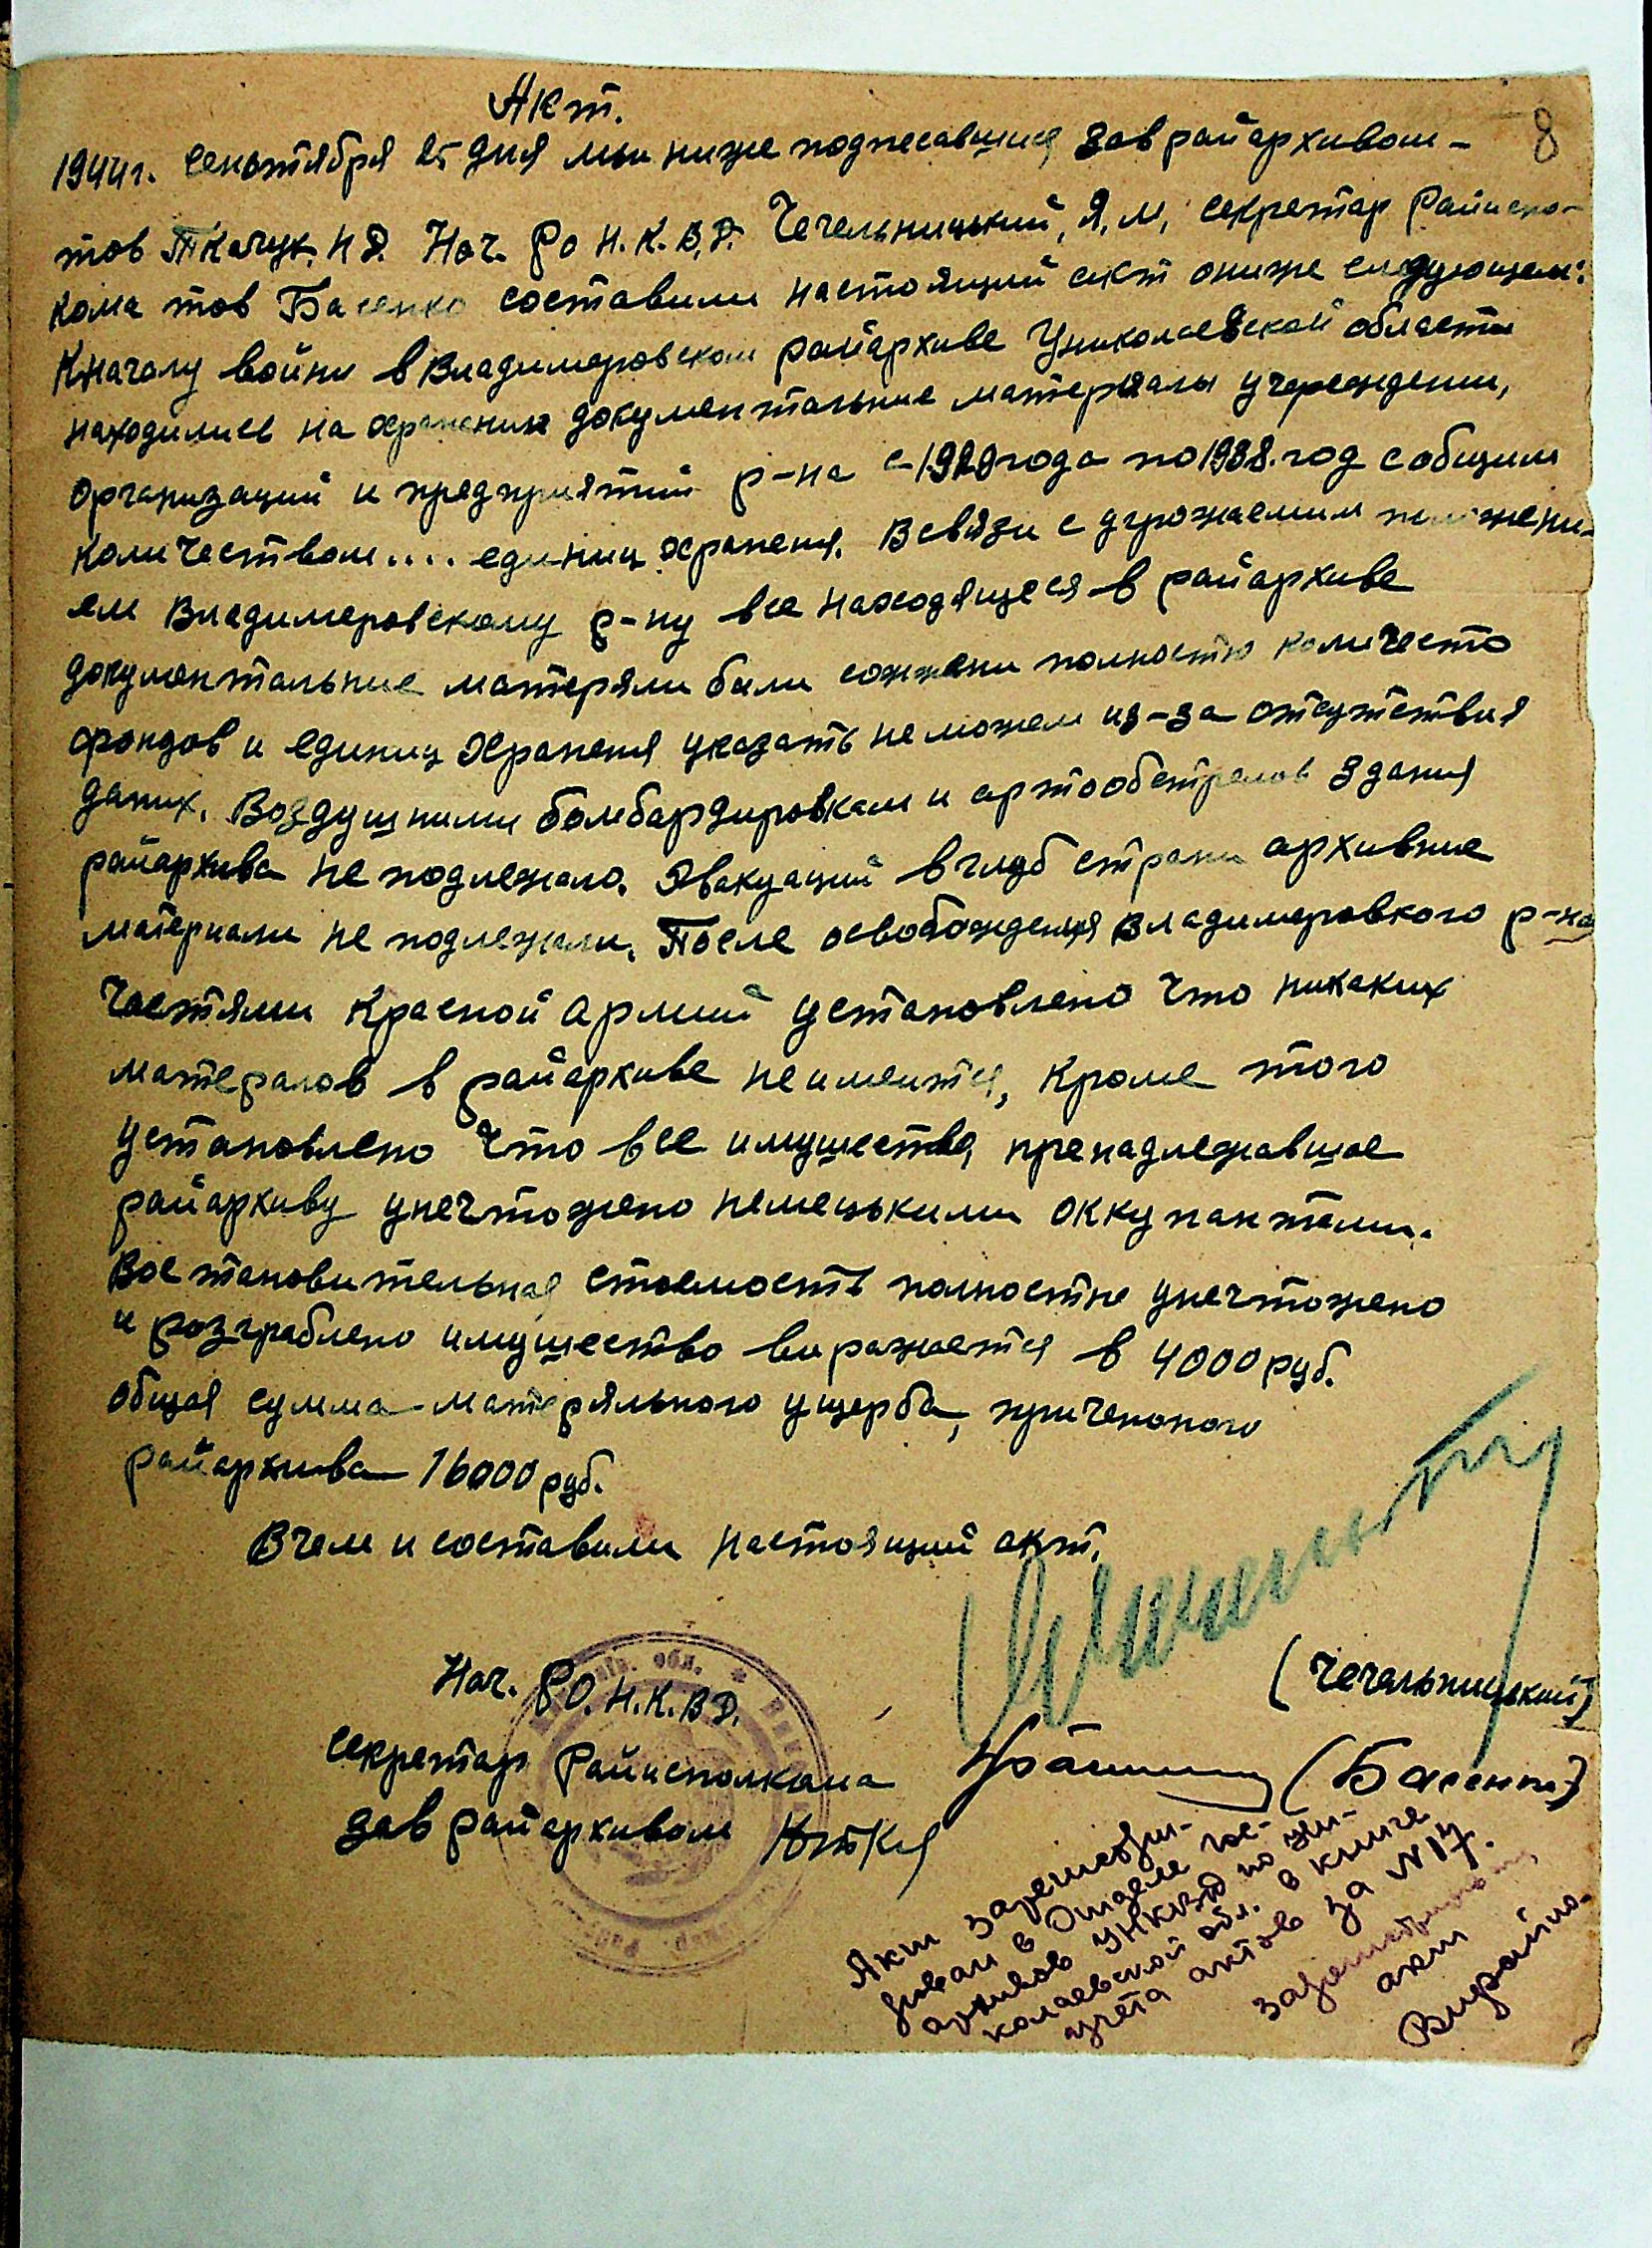 8
Акт.
1944г. сеньтября 25 дня мы ниже подпесавшися Зав райархивом-
тов Ткачук. Н Д. Нач. РО Н.К.В.Д. Чечельницький, Я, М, секретар Райиспо-
кома тов Басенко составили настоящий акт ониже следующем:
Кначалу войни в Владимеровском райархиве Униколаевской области
находились на охранении документальние материалы учереждении,
организаций и предприятий р-на с-1920 года по 1938. год собщим
количеством.... единиц охраненя. Всвязи с угрожаемим положени-
ем Владимеровскому р-ну все находящееся в райархиве
документальние матеряли били сожжени полностю количесто
фондов и единиц охраненя указать не можем из-за отсутствия
даних. Воздушними бомбардировкам и артообстрелов здания
райархива не подлежало. Эвакуаций вглуб страни архивние
материали не подлежали. После освобождения Владимеровкого р-на
Частями Красной армии установлено что никаких
матералов в райархиве неимеится, Кроме того
установлено что все имущества, пренадлежавшое
райархиву унечтожено немецькими оккупантами.
Востановительная стоемость полностю унечтожено
и розграблено имущество виражается в 4000 руб.
общая сумма-матеряльного ущерба, приченоного
райархива 16000 руб.
Вчем и составили настоящий акт.
Нач. РО. Н.К.ВД. (Чечельницький)
секретар Райисполкома (Басенко)
зав райархивом
Акт зарегистри-
рован в Отделе гос-
архивов УНКВД по Ни-
колаевской обл. в книге
учёта актов за №17.
акт